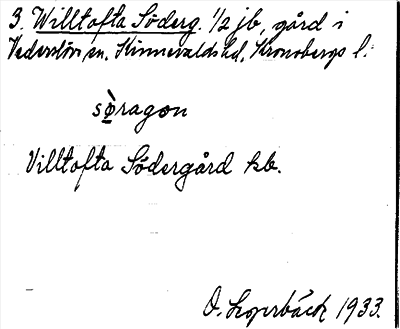 3. Willtofta Söderg. 1/2 jb, gård i
Vederslövs sn. Kinnevalds hd, Kronobergs l.
sø̀ragən
Villtofta Södergård kb.
O. 1933.